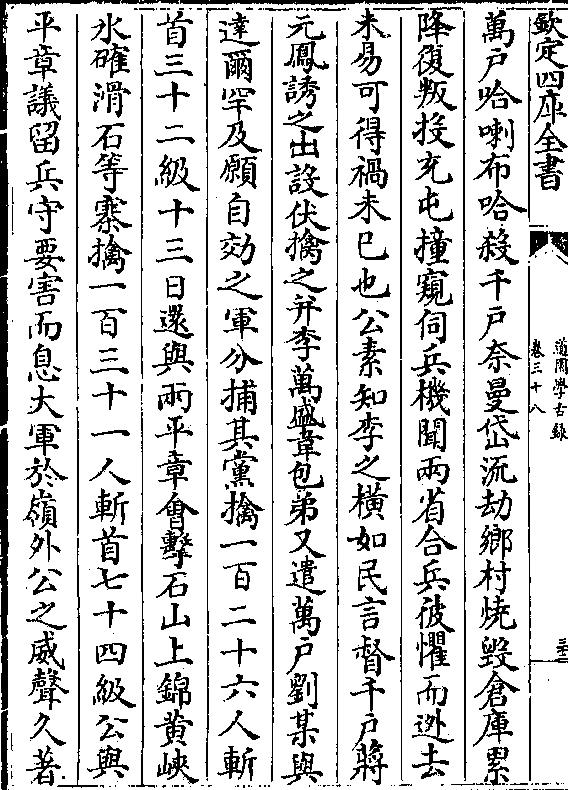 欽定四庫全書
道園學古錄
卷三十八
萬户哈喇布哈殺千户奈曼岱流劫鄉村燒毁倉庫累
降復叛投充屯撞窺伺兵機聞兩省合兵彼懼而迯去
未易可得禍未已也公素知李之横如民言督千户蔣
元鳳誘之出設伏擒之并李萬盛韋包弟又遣萬户劉某與
達爾罕及願自効之軍分捕其黨擒一百二十六人斬
首三十二級十三日還與兩平章會擊石山上錦黄峽
水確滑石等寨擒一百三十一人斬首七十四級公與
平章議留兵守要害而息大軍於嶺外公之威聲久著